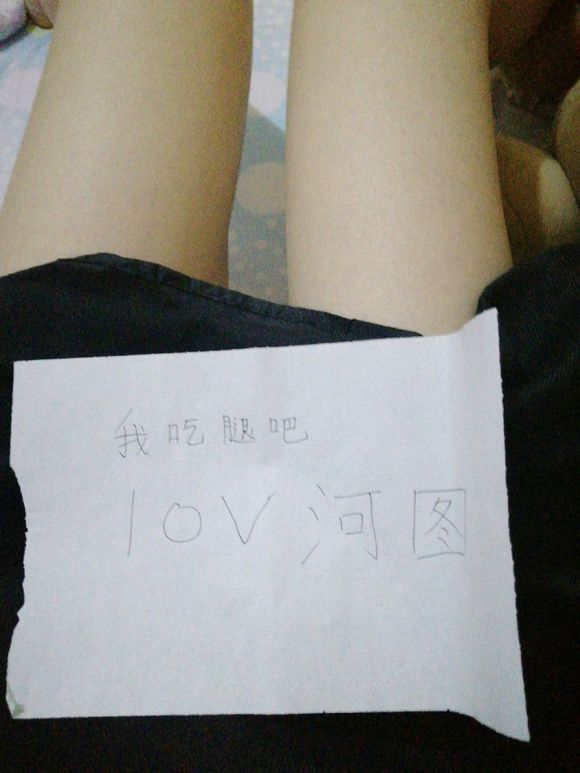 我吃腿吧
10V河图